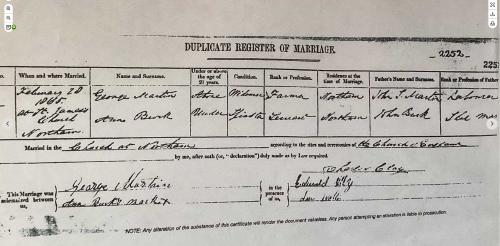 DUPLICATE REGISTER OF MARRIAGE.
2252
225
o. When and where Married. Name and Surname. Under or above the age of 21 years. Condition. Rank or Profession. Residence at the time of Marriage. Father's Name and Surname. Rank or Profession of Father
February 28 George Martin Above Widower Farmer Northam John Martin Labourer
1865
at St. James's Anne Buck Under Spinster Servant Northam John Buck
Church
Northam
Married in the Church at Northam according to the rites and ceremonies of the Church of England
by me, after oath (or, "declaration") duly made as by Law required.
Charles Clay
This Marriage was solemnized between us, George Martin in the presence of us, Edward
Anne Buck mark X
*NOTE: Any alteration of the substance of this certificate will render the document valueless. Any person attempting an alteration is liable to prosecution.